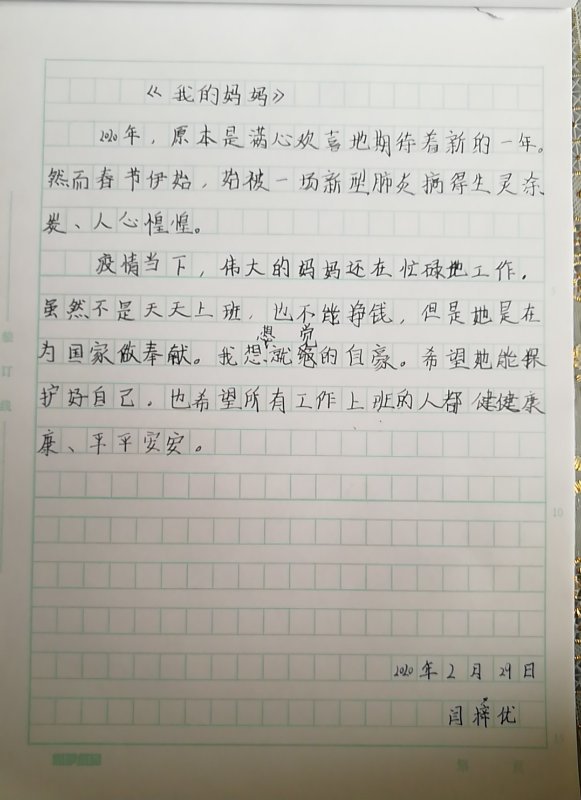 《我的妈妈》
2020年，原本是满心欢喜地期待着新的一年。
然而春节伊始，始被一场新型肺炎病得生灵涂
炭、人心惶惶。
疫情当下，伟大的妈妈还在忙碌地工作。
虽然不是天天上班，也不能挣钱，但是她是在
想 觉
为国家做奉献。我想就的自豪。希望她能保
护好自己，也希望所有工作上班的人都健健康
康、平平安安。
2020年2月29日
闫梓优
订
线
5
10
15
第 页